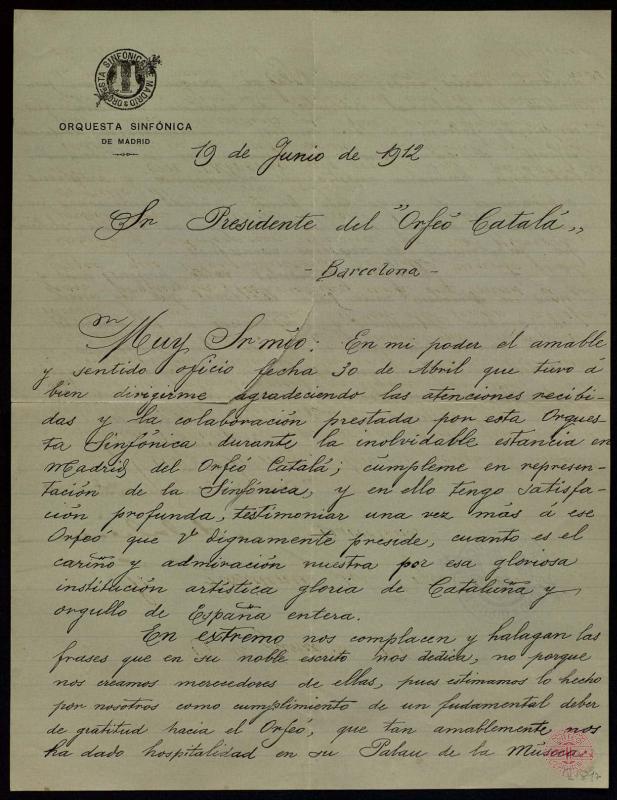 ORQUESTA SINFÓNICA DE MADRID
ORQUESTA SINFÓNICA
DE MADRID
19 de Junio de 1912
Sr Presidente del "Orfeó Catalá"
- Barcelona -
Muy Sr mio: En mi poder el amable
y sentido oficio fecha 30 de Abril que tuvo á
bien dirigirme agradeciendo las atenciones recibi-
das y la colaboración prestada por esta Orques-
ta Sinfónica durante la inolvidable estancia en
Madrid del Orfeó Catalá; cúmpleme en represen-
tación de la Sinfónica, y en ello tengo satisfa-
ción profunda, testimoniar una vez más á ese
Orfeó que Vd dignamente preside, cuanto es el
cariño y admiración nuestra por esa gloriosa
institución artística gloria de Cataluña y
orgullo de España entera.
En extremo nos complacen y halagan las
frases que en su noble escrito nos dedica, no porque
nos creamos merecedores de ellas, pues estimamos lo hecho
por nosotros como cumplimiento de un fudamental deber
de gratitud hacia el Orfeó, que tan amablemente nos
ha dado hospitalidad en su Palau de la Música.